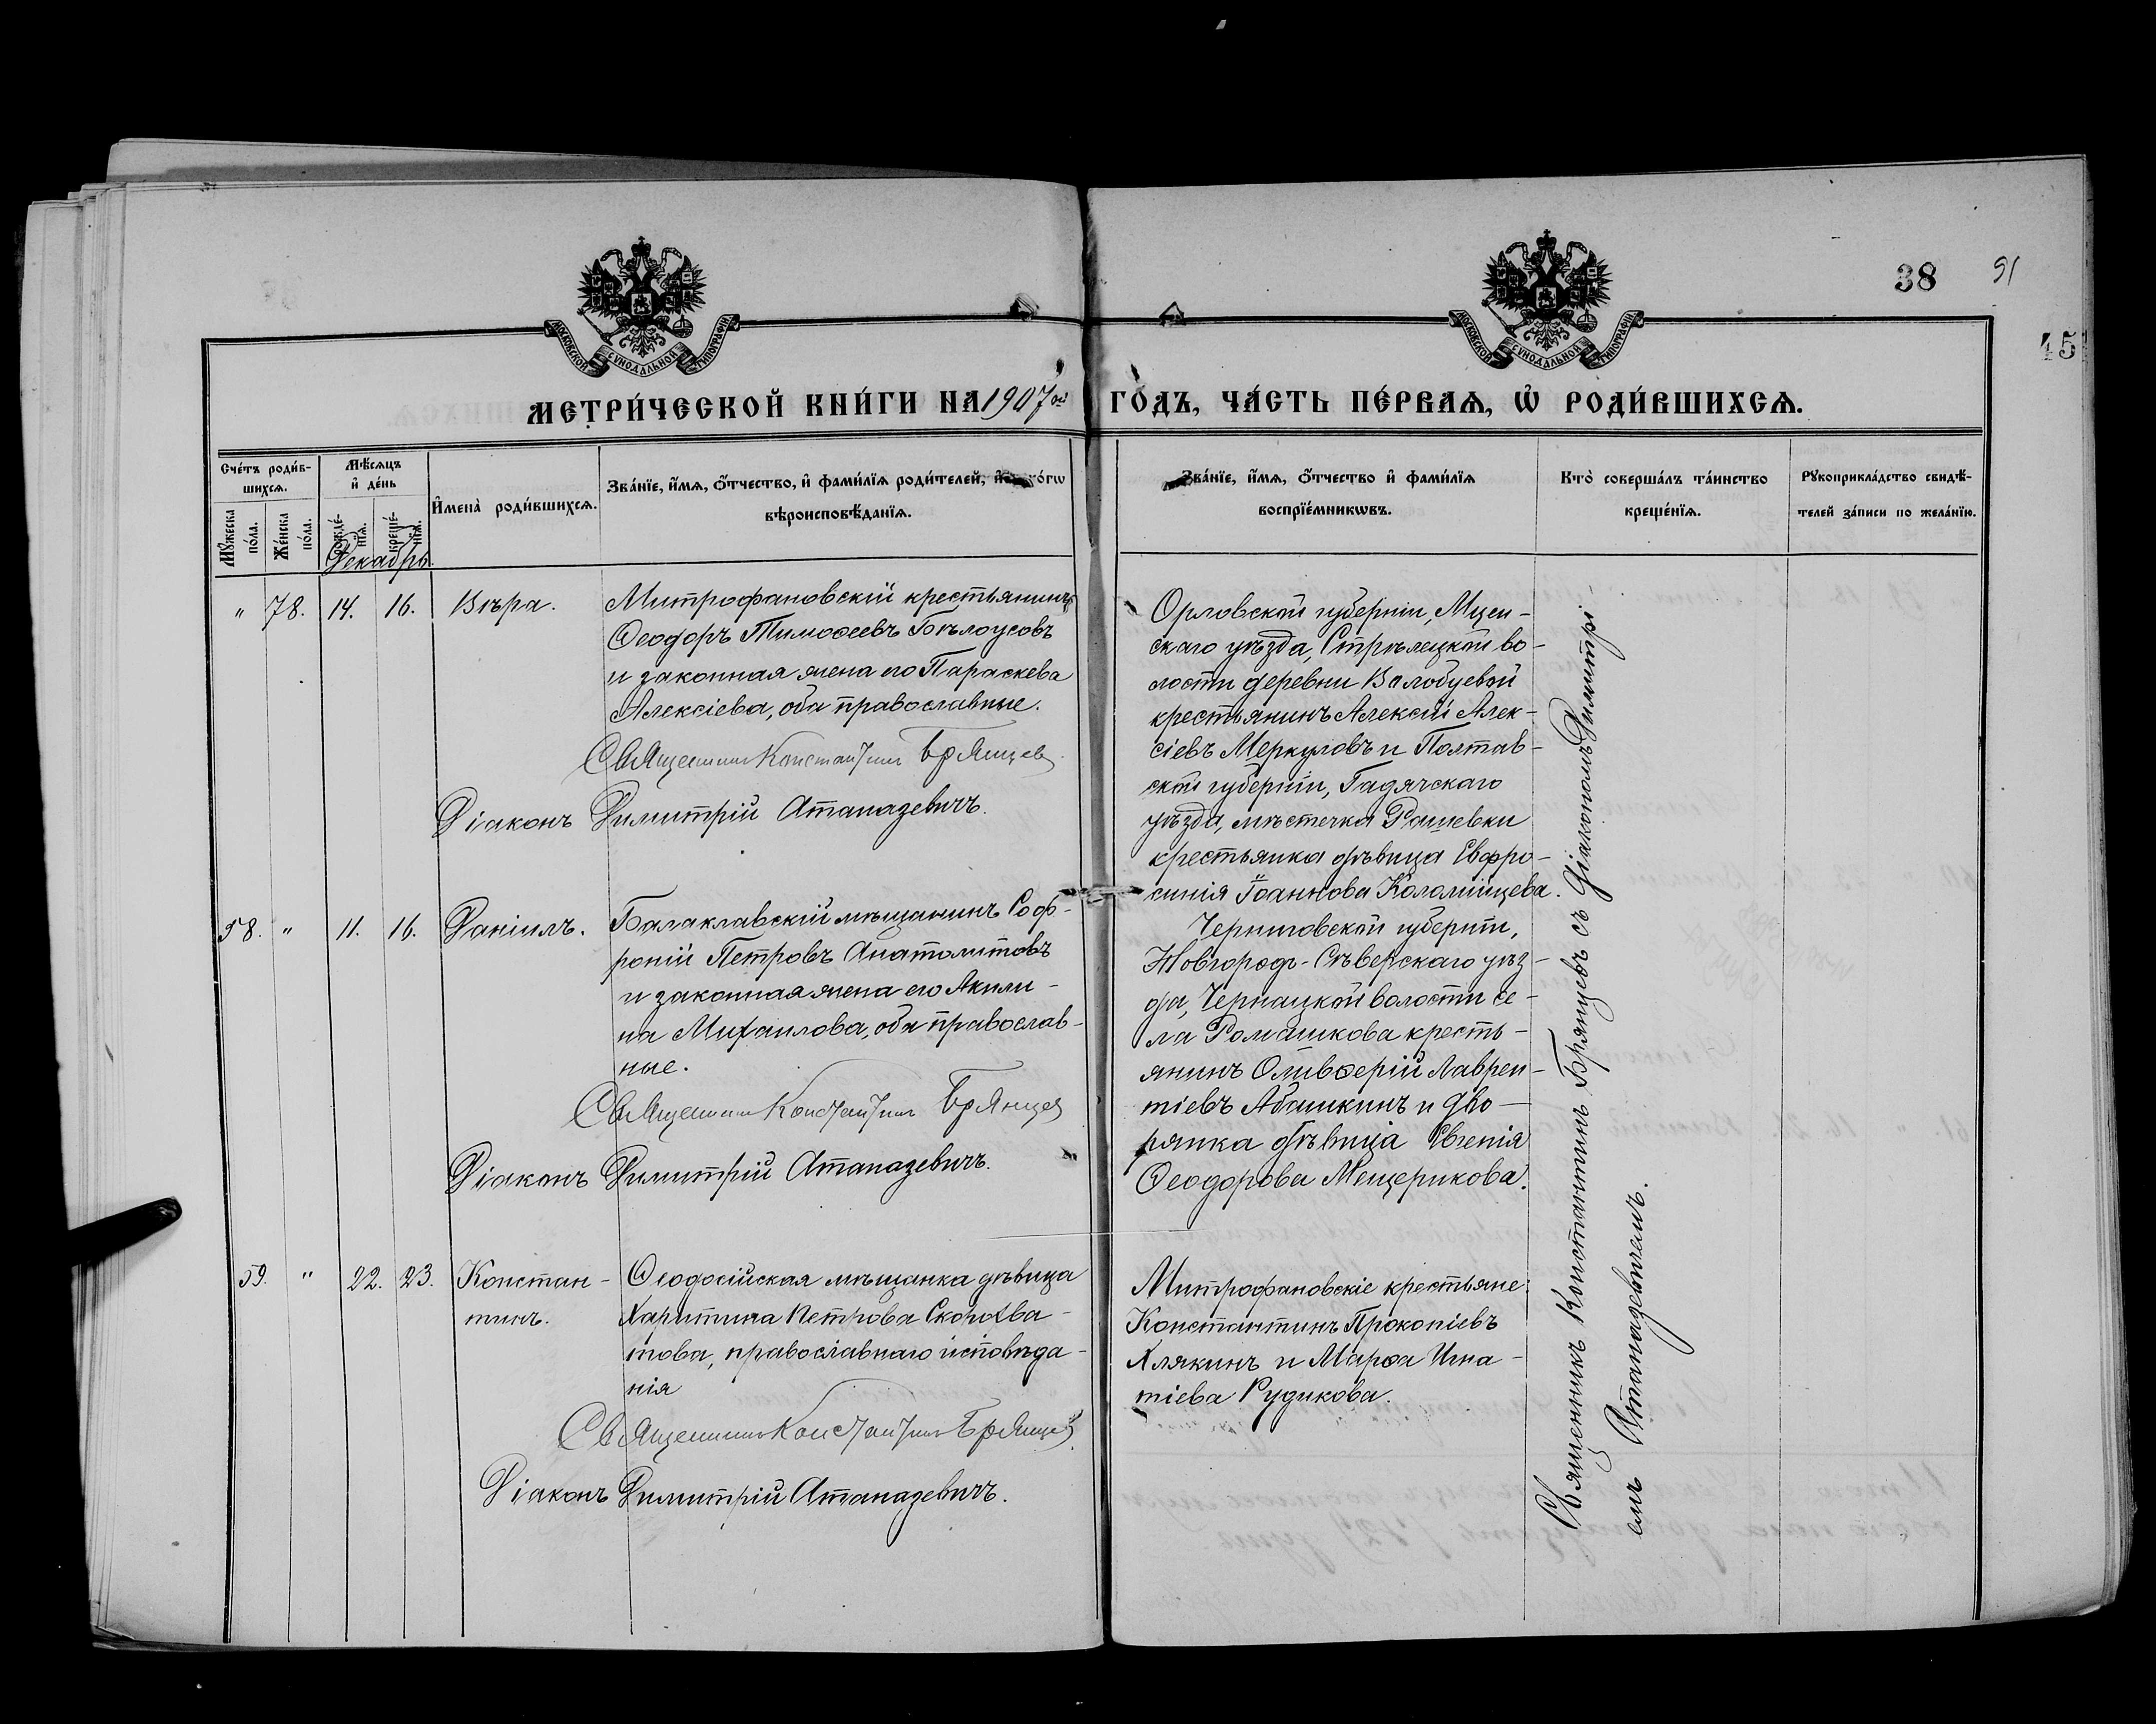 38
91
45
МОСКОВСКОЙ СУНОДАЛЬНОЙ ТИПОГРАФІИ
МОСКОВСКОЙ СУНОДАЛЬНОЙ ТИПОГРАФІИ
МЕТРИ́ЧЕСКОЙ КНИ́ГИ НА 1907ой ГО́ДЪ, ЧА́СТЬ ПЕ́РВАѦ, Ѡ҆ РОДИ́ВШИХСѦ.
Сче́тъ роди́в-
шихсѧ.
Мꙋ́жеска по́ла.
Же́нска по́ла.
Мѣ́сѧцъ
и҆ де́нь
рожде́-нїѧ.
креще́-нїѧ.
И҆мена̀ роди́вшихсѧ.
Зва́нїе, и҆́мѧ, ѻ҆́тчество, и҆ фами́лїѧ роди́телей,
вѣроисповѣ́данїѧ.
Зва́нїе, и҆́мѧ, ѻ҆́тчество и҆ фами́лїѧ
воспрїе́мникѡвъ.
Кто̀ соверша́лъ та́инство
креще́нїѧ.
Рꙋкоприкла́дство свидѣ́-
телей за́писи по жела́нїю.
Декабрь.
" 78. 14. 16. Вѣра.
Митрофановскій крестьянинъ
Ѳеодоръ Тимоѳеевъ Бѣлоусовъ
и законная жена его Параскева
Алексіева, оба православные.
Священникъ Константинъ Брянцев
Діаконъ Димитрій Атаназевичъ.
Орловской губерніи, Мцен-
скаго уѣзда, Стрѣлецкой во-
лости деревни Волобуевой
крестьянинъ Алексій Алек-
сіевъ Меркуловъ и Полтав-
ской губерніи, Гадячскаго
уѣзда, мѣстечка Рашевки
крестьянка дѣвица Евфро-
синія Іоаннова Коломійцева.
58. " 11. 16. Даніилъ.
Балаклавскій мѣщанинъ Соф-
роній Петровъ Анатолитовъ
и законная жена его Акили-
на Михаилова, оба православ-
ные.
Священникъ Константинъ Брянцев
Діаконъ Димитрій Атаназевичъ.
Черниговской губерніи,
Новгородъ-Сѣверскаго уѣз-
да, Чернацкой волости се-
ла Ромашкова кресть-
янинъ Олимѳерій Лаврен-
тіевъ Абашкинъ и дво-
рянка дѣвица Евгенія
Ѳеодорова Мещерикова.
59. " 22. 23. Констан-
тинъ.
Ѳеодосійская мѣщанка дѣвица
Харитина Петрова Скорохва-
това, православнаго исповѣда-
нія
Священникъ Константинъ Брянцевъ
Діаконъ Димитрій Атаназевичъ.
Митрофановскіе крестьяне:
Константинъ Прокопіевъ
Хлякинъ и Марѳа Игна-
тіева Рудикова.
Священникъ Константинъ Брянцевъ съ діакономъ Димитрі-
емъ Атаназевичемъ.